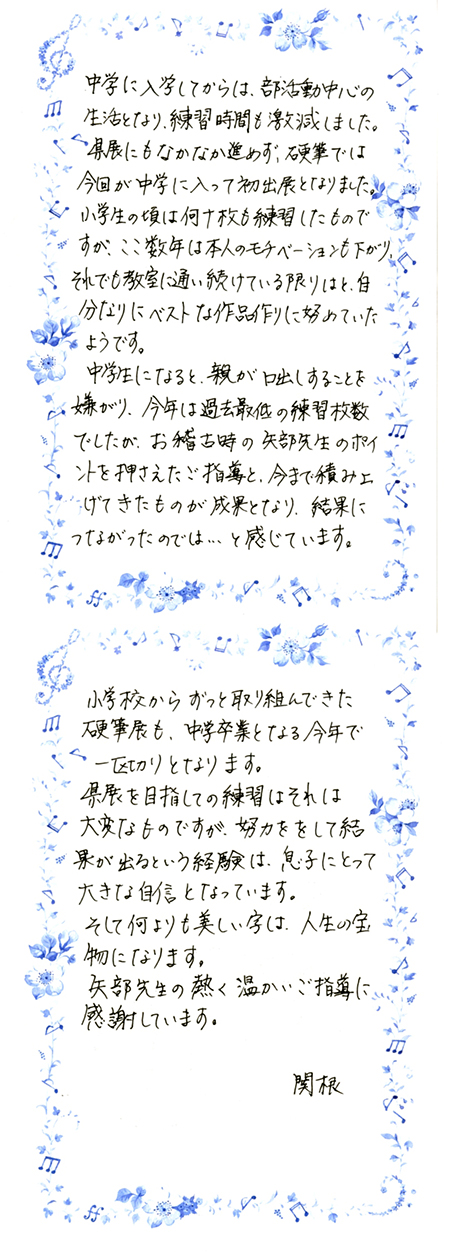 中学に入学してからは、部活動中心の
生活となり、練習時間も激減しました。
県展にもなかなか進めず、硬筆では
今回が中学に入って初出展となりました。
小学生の頃は何十枚も練習したもので
すが、ここ数年は本人のモチベーションも下がり、
それでも教室に通い続けている限りはと、自
分なりにベストな作品作りに努めていた
ようです。
中学生になると、親が口出しすることを
嫌がり、今年は過去最低の練習枚数
でしたが、お稽古時の矢部先生のポイ
ントを押さえたご指導と、今まで積み上
げてきたものが成果となり、結果に
つながったのでは…と感じています。
小学校からずっと取り組んできた
硬筆展も、中学卒業となる今年で
一区切りとなります。
県展を目指しての練習はそれは
大変なものですが、努力ををして結
果が出るという経験は、息子にとって
大きな自信となっています。
そして何よりも美しい字は、人生の宝
物になります。
矢部先生の熱く温かいご指導に
感謝しています。
関根